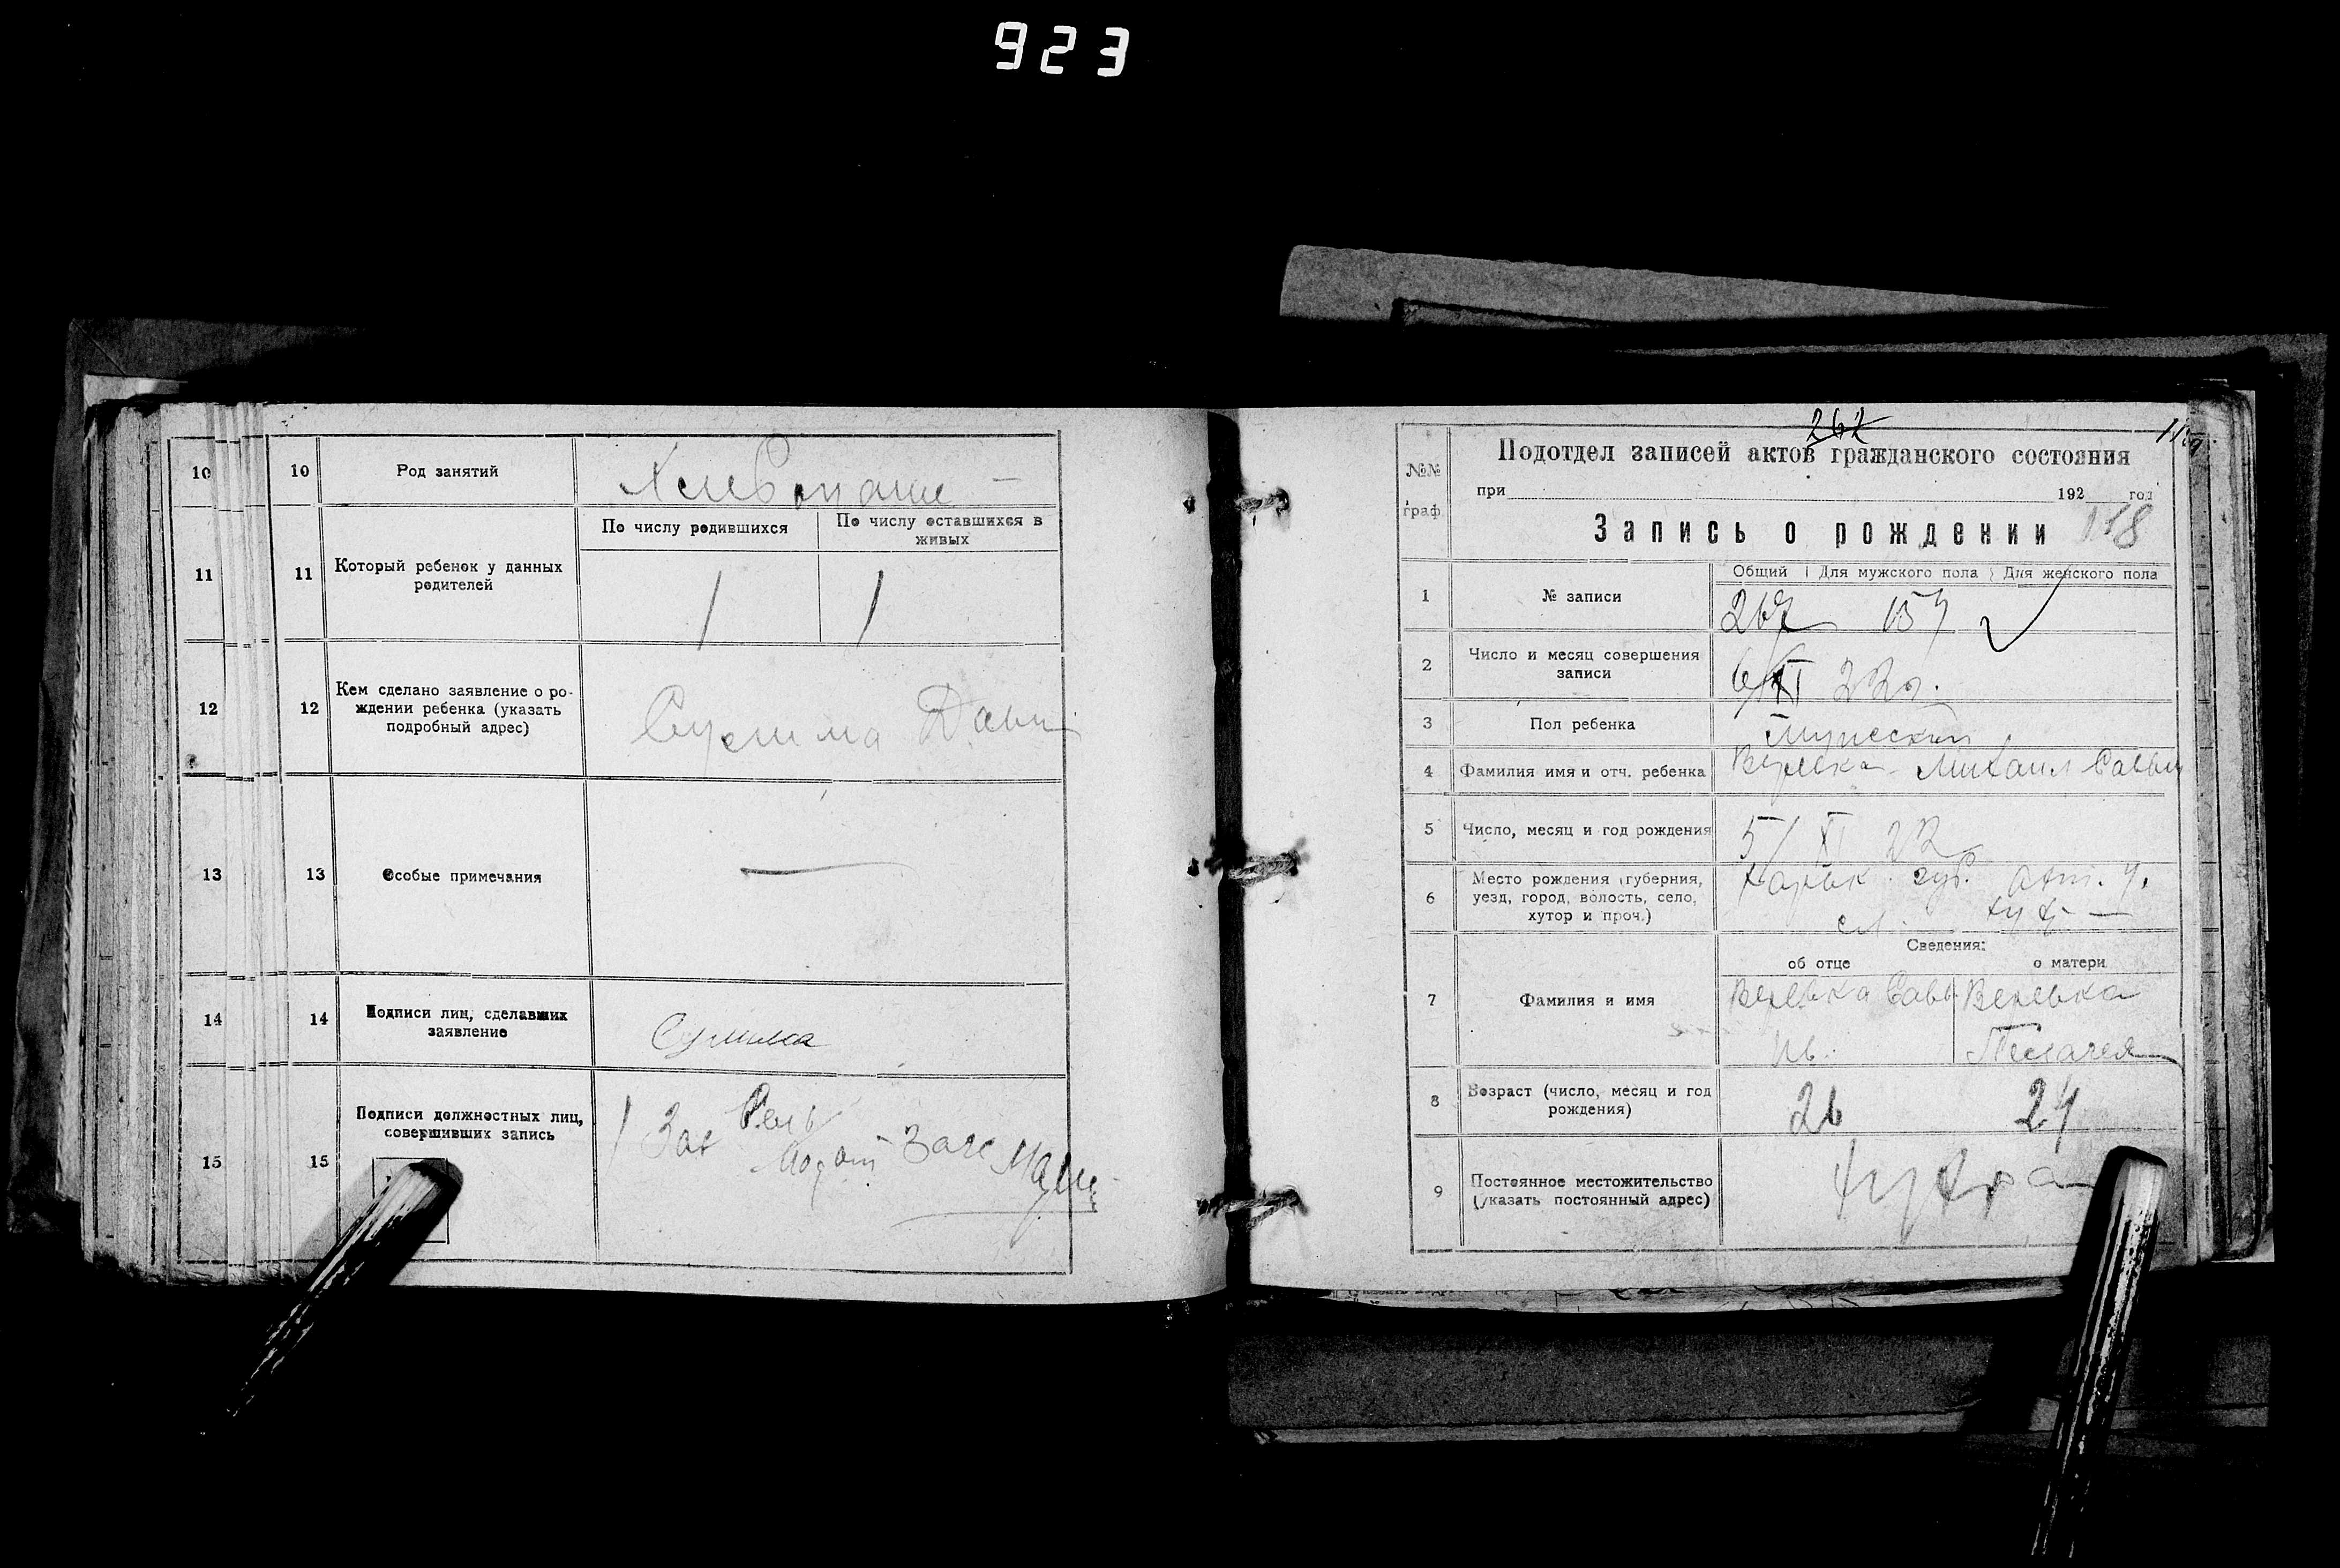 923
10 10 Род занятий
11 11 Который ребенок у данных
родителей
По числу родившихся
По числу оставшихся в
живых
1 1
12 12 Кем сделано заявление о ро-
ждении ребенка (указать
подробный адрес)
13 13 Особые примечания
—
14 14 Подписи лиц, сделавших
заявление
15 15 Подписи должностных лиц,
совершивших запись
262
№№
граф
Подотдел записей актов гражданского состояния
при 192 год
Запись о рождении 118
1 № записи
Общий Для мужского пола Для женского пола
267 157
2 Число и месяц совершения
записи
6/XI 22г.
3 Пол ребенка
Мужеский
4 Фамилия имя и отч. ребенка
Веревка Михаил Саввич
5 Число, месяц и год рождения
5/XI 22
6 Место рождения (губерния,
уезд, город, волость, село,
хутор и проч.)
Харьк. губ. Ахт. у.
сл.
Сведения:
об отце о матери
7 Фамилия и имя
Веревка Савв Веревка
Ив. Пелагея
8 Возраст (число, месяц и год
рождения)
26 24
9 Постоянное местожительство
(указать постоянный адрес)